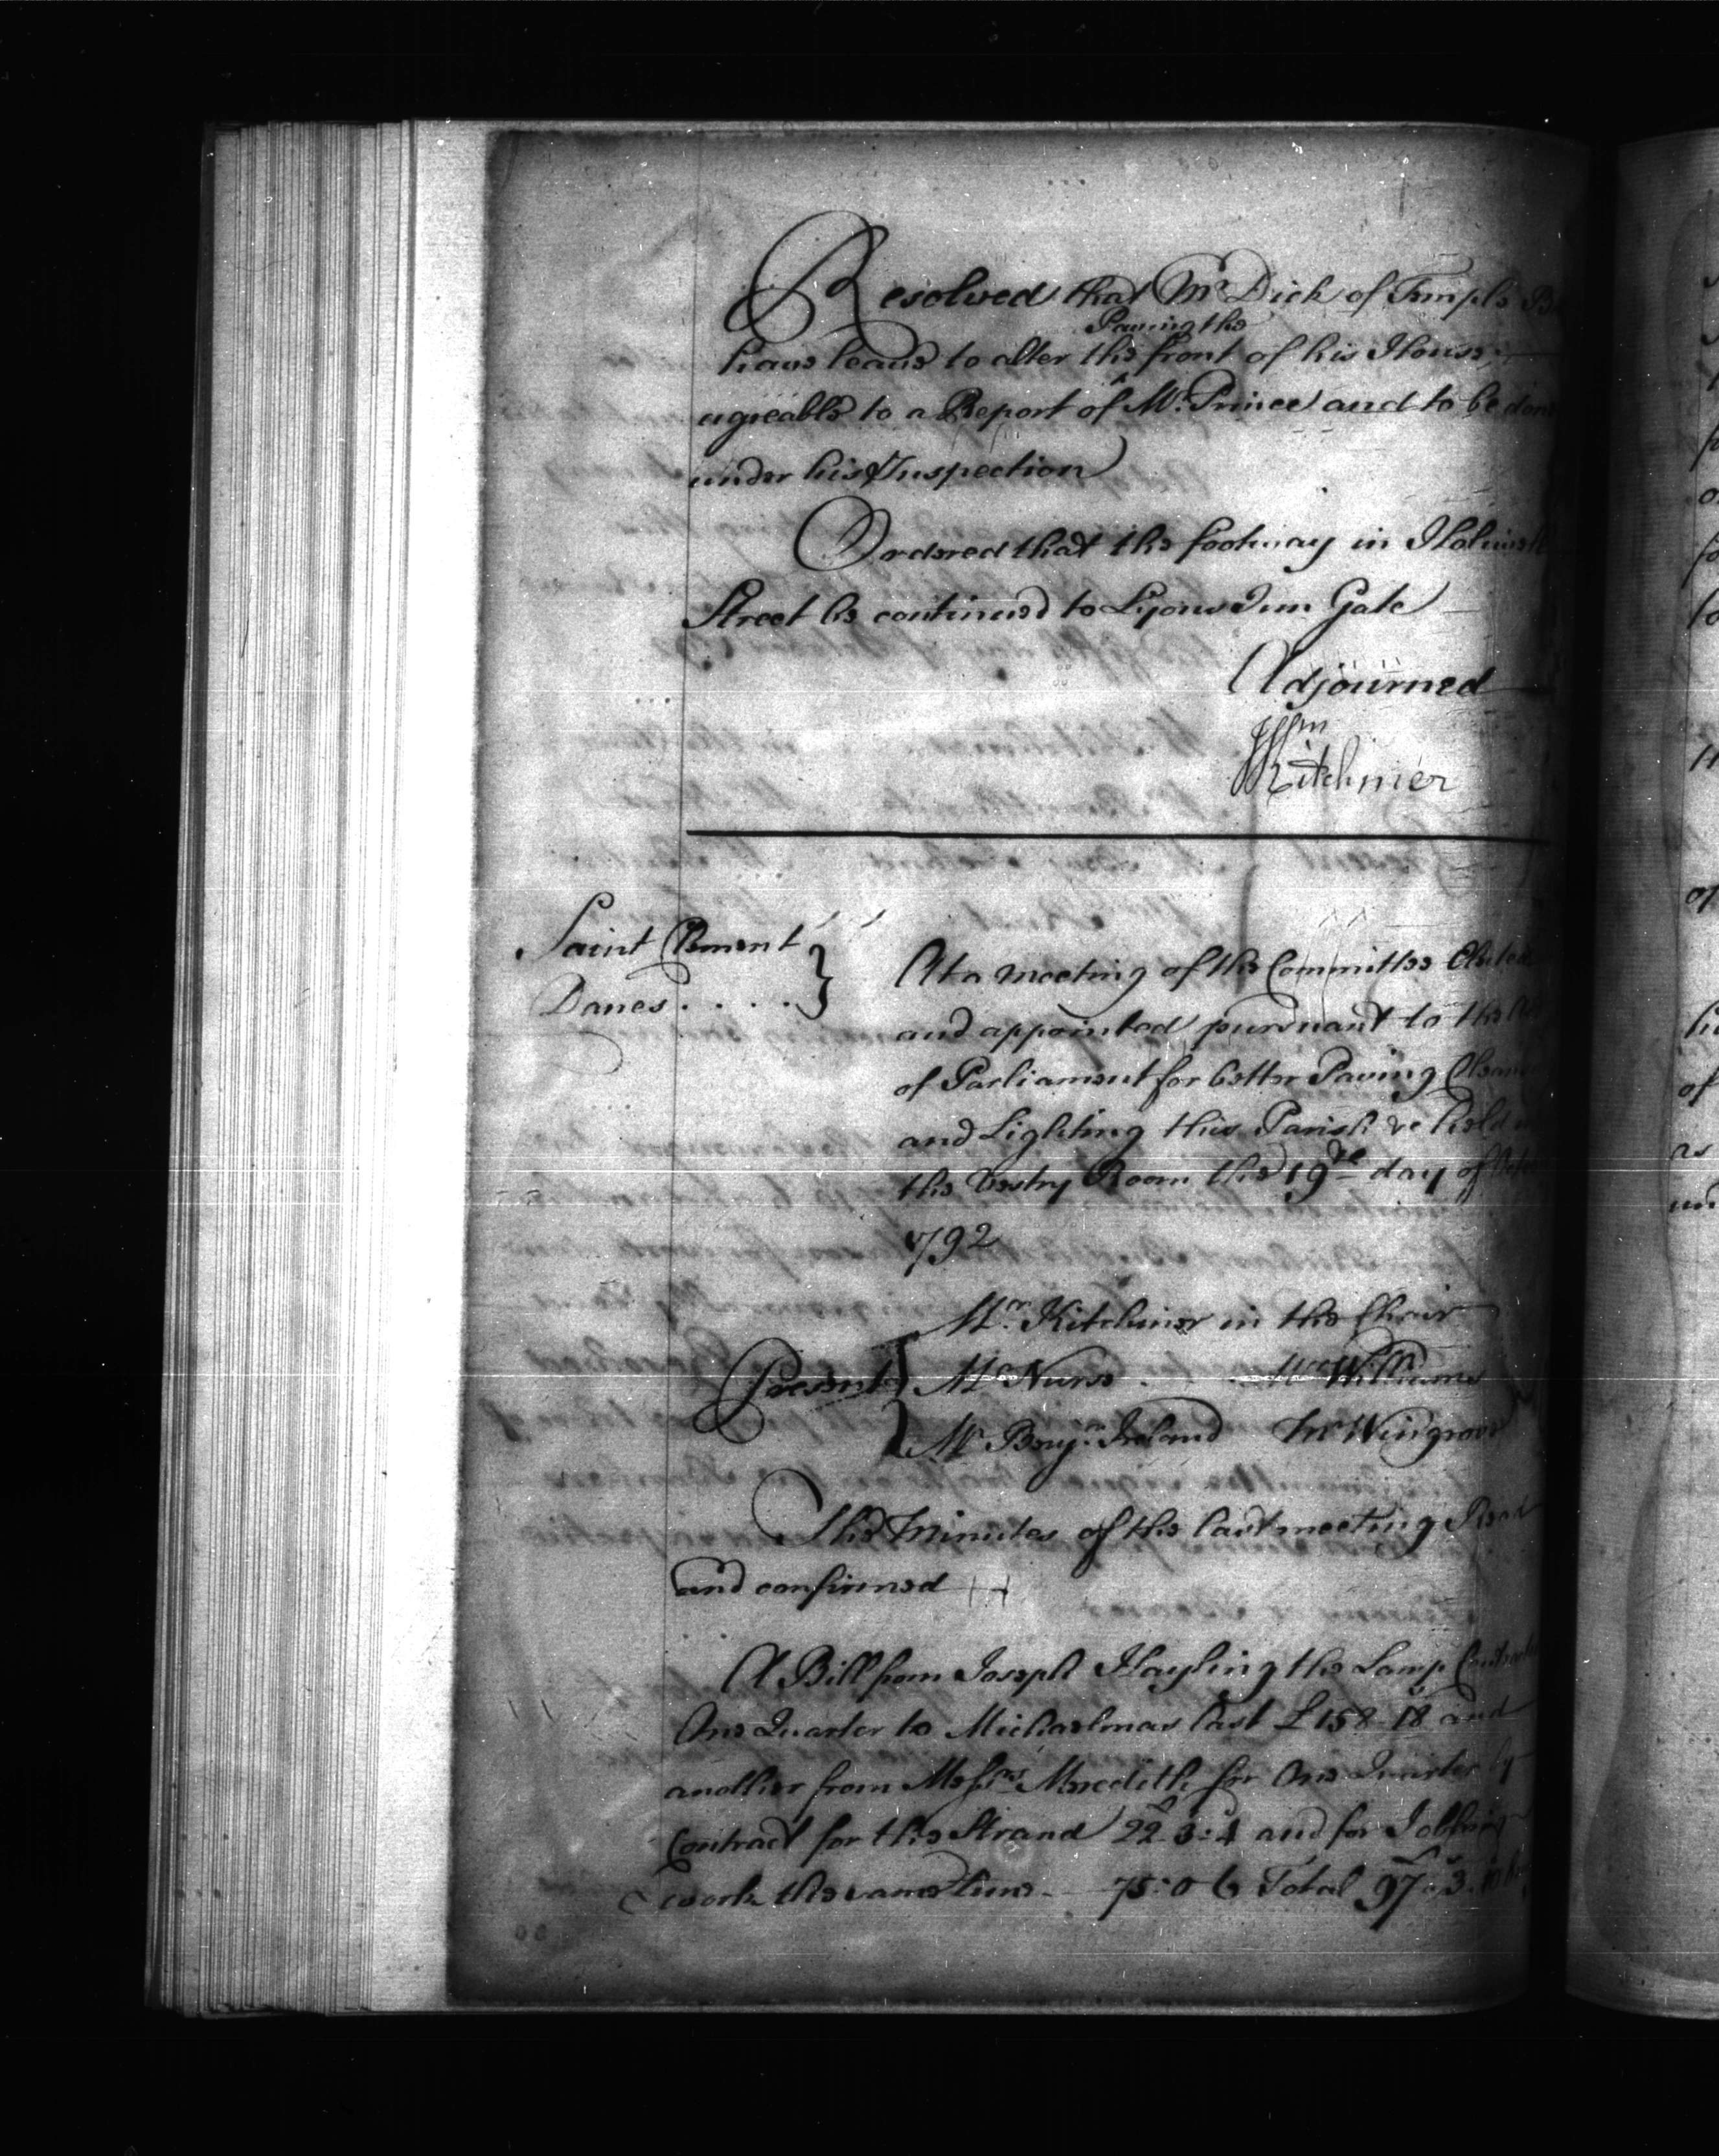 Resolved that Mr Dick of Temple
Paving the
have leave to alter the front of his House
agreable to a Report of Mr. Prince and to be done
under his Inspection
Ordered that the footway in
Street be continued to Lyons Inn Gate
Adjourned
Wm
Kitchner
Saint Clement
Danes . . . . }
At a meeting of the Committee Elected
and appointed pursuant to the
of Parliament for better Paving
and Lighting this Parish &c held
the Vestry Room the 19th day of
1792
Mr. Kitchiner in the Chair
Present } Mr Nurse . . Mr Williams
Mr Benjn. Ireland Mr Wingrove
The Minutes of the last meeting Read
and confirmed
A Bill from Joseph Hayling the Lamp
One Quarter to Michaelmas last £158-18 and
another from Messrs Meredith for One Quarter by
Contract for the Strand 22-3:4 and for Jobbing
work the same time - 75:0 6 Total 97-3-10